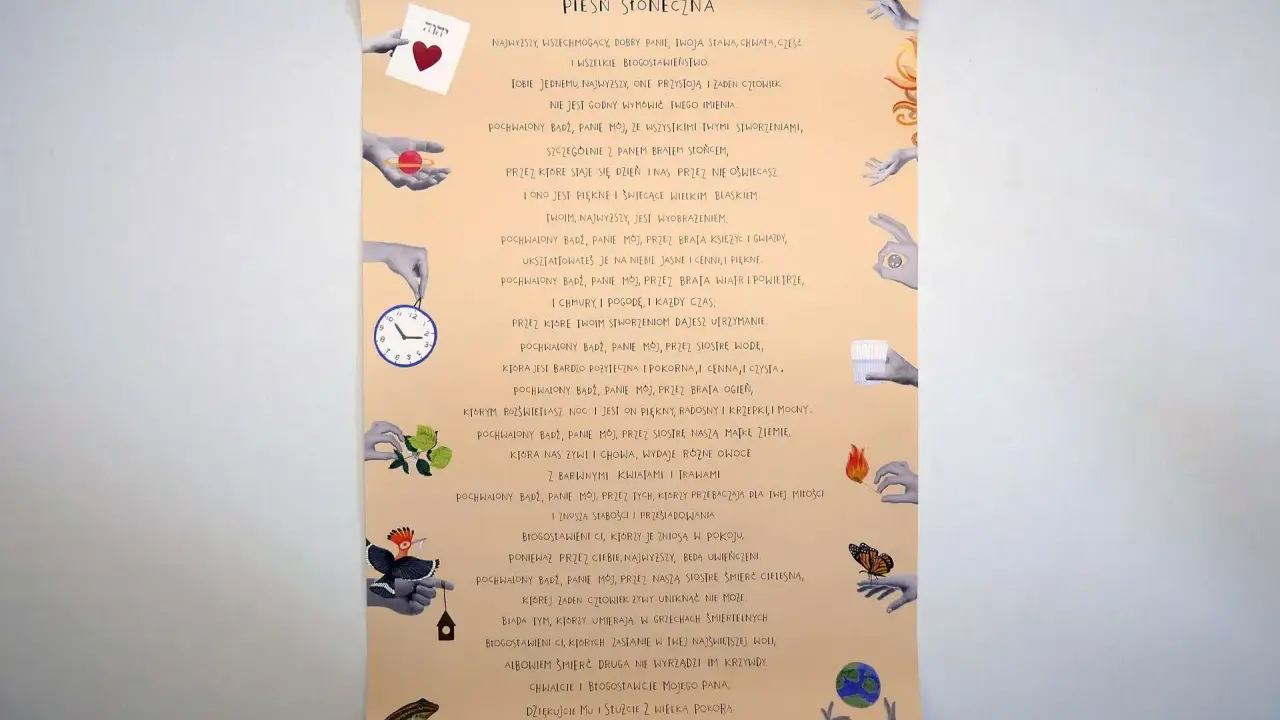 PIEŚŃ SŁONECZNA
יהוה
NAJWYŻSZY, WSZECHMOGĄCY, DOBRY PANIE, TWOJA SŁAWA, CHWAŁA, CZEŚĆ
I WSZELKIE BŁOGOSŁAWIEŃSTWO.
TOBIE JEDNEMU, NAJWYŻSZY, ONE PRZYSTOJĄ I ŻADEN CZŁOWIEK
NIE JEST GODNY WYMÓWIĆ TWEGO IMIENIA.
POCHWALONY BĄDŹ, PANIE MÓJ, ZE WSZYSTKIMI TWYMI STWORZENIAMI,
SZCZEGÓLNIE Z PANEM BRATEM SŁOŃCEM,
PRZEZ KTÓRE STAJE SIĘ DZIEŃ I NAS PRZEZ NIE OŚWIECASZ.
I ONO JEST PIĘKNE I ŚWIECĄCE WIELKIM BLASKIEM
TWOIM, NAJWYŻSZY, JEST WYOBRAŻENIEM.
POCHWALONY BĄDŹ, PANIE MÓJ, PRZEZ BRATA KSIĘŻYC I GWIAZDY,
UKSZTAŁTOWAŁEŚ JE NA NIEBIE JASNE I CENNE, I PIĘKNE.
POCHWALONY BĄDŹ, PANIE MÓJ, PRZEZ BRATA WIATR I POWIETRZE,
I CHMURY, I POGODĘ, I KAŻDY CZAS,
PRZEZ KTÓRE TWOIM STWORZENIOM DAJESZ UTRZYMANIE.
POCHWALONY BĄDŹ, PANIE MÓJ, PRZEZ SIOSTRĘ WODĘ,
KTÓRA JEST BARDZO POŻYTECZNA I POKORNA, I CENNA, I CZYSTA.
POCHWALONY BĄDŹ, PANIE MÓJ, PRZEZ BRATA OGIEŃ,
KTÓRYM ROZŚWIETLASZ NOC I JEST ON PIĘKNY, RADOSNY I KRZEPKI, I MOCNY.
POCHWALONY BĄDŹ, PANIE MÓJ, PRZEZ SIOSTRĘ NASZĄ MATKĘ ZIEMIĘ,
KTÓRA NAS ŻYWI I CHOWA, WYDAJE RÓŻNE OWOCE
Z BARWNYMI KWIATAMI I TRAWAMI
POCHWALONY BĄDŹ, PANIE MÓJ, PRZEZ TYCH, KTÓRZY PRZEBACZAJĄ DLA TWEJ MIŁOŚCI
I ZNOSZĄ SŁABOŚCI I PRZEŚLADOWANIA
BŁOGOSŁAWIENI CI, KTÓRZY JE ZNIOSĄ W POKOJU,
PONIEWAŻ PRZEZ CIEBIE, NAJWYŻSZY, BĘDĄ UWIEŃCZENI.
POCHWALONY BĄDŹ, PANIE MÓJ, PRZEZ NASZĄ SIOSTRĘ ŚMIERĆ CIELESNĄ,
KTÓREJ ŻADEN CZŁOWIEK ŻYWY UNIKNĄĆ NIE MOŻE.
BIADA TYM, KTÓRZY UMIERAJĄ W GRZECHACH ŚMIERTELNYCH
BŁOGOSŁAWIENI CI, KTÓRYCH ZASTANIE W TWEJ NAJŚWIĘTSZEJ WOLI,
ALBOWIEM ŚMIERĆ DRUGA NIE WYRZĄDZI IM KRZYWDY.
CHWALCIE I BŁOGOSŁAWCIE MOJEGO PANA,
DZIĘKUJCIE MU I SŁUŻCIE Z WIELKĄ POKORĄ.
12
1
2
3
4
5
6
7
8
9
10
11